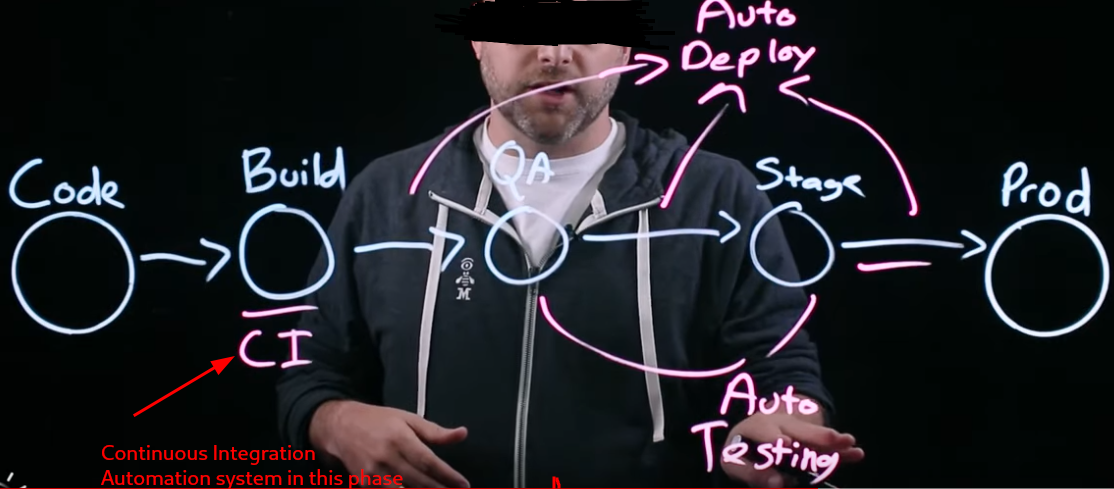 Auto
Deploy
Code
Build
QA
Stage
Prod
M
CI
Auto
Testing
Continuous Integration
Automation system in this phase